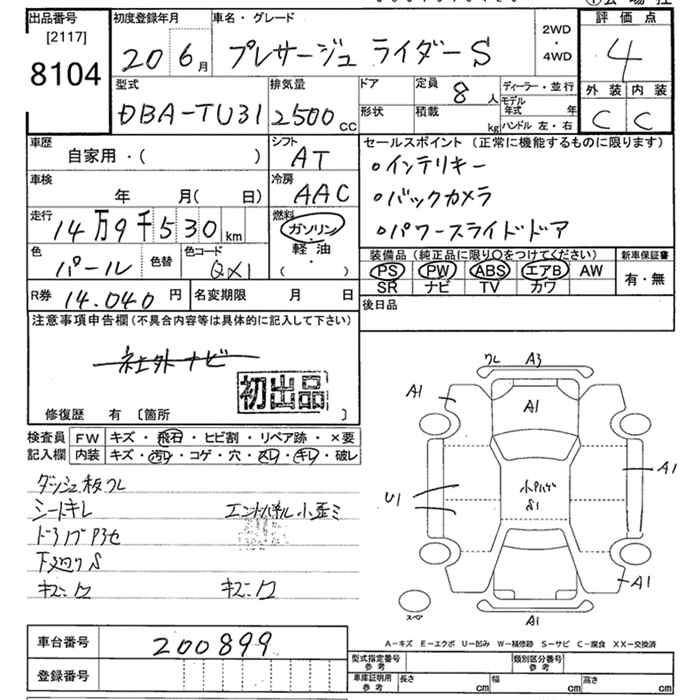 出品番号 初度登録年月 車名・グレード 評価点
[2117] 8104
20 6月 プレサージュ ライダーS 2WD・4WD 4
型式 排気量 ドア 定員 ディーラー・並行 外装 内装
DBA-TU31 2500cc 8人 モデル年式 年 C C
形状 積載 kg ハンドル 左・右
車歴 シフト セールスポイント(正常に機能するものに限ります)
自家用・( ) AT ○インテリキー
車検 冷房
年 月( 日) AAC ○バックカメラ
走行 燃料
14万9千530km ガソリン・軽油・( ) ○パワースライドドア
色 色替 色コード 装備品(純正品に限り○をつけてください) 新車保証書
パール QX1 PS PW ABS エアB AW 有・無
SR ナビ TV カワ
R券 14.040円 名変期限 月 日 後日品
注意事項申告欄(不具合内容等は具体的に記入して下さい)
社外ナビ
初出品
修復歴 有〔箇所 〕
検査員記入欄 FW キズ・飛石・ヒビ割・リペア跡・×要
内装 キズ・汚レ・コゲ・穴・スレ・キレ・破レ
ダッシュ板ワレ
シートキレ エンドパネル小歪ミ
下廻りS
ワレ A3
A1 A1 A1
U1 A1
S1
A1
スペア A1
A-キズ E-エクボ U-凹み W-補修跡 S-サビ C-腐食 XX-交換済
車台番号 200899 型式指定番号 参考 類別区分番号 参考
登録番号 車庫証明用 参考 長さ cm 幅 cm 高さ cm